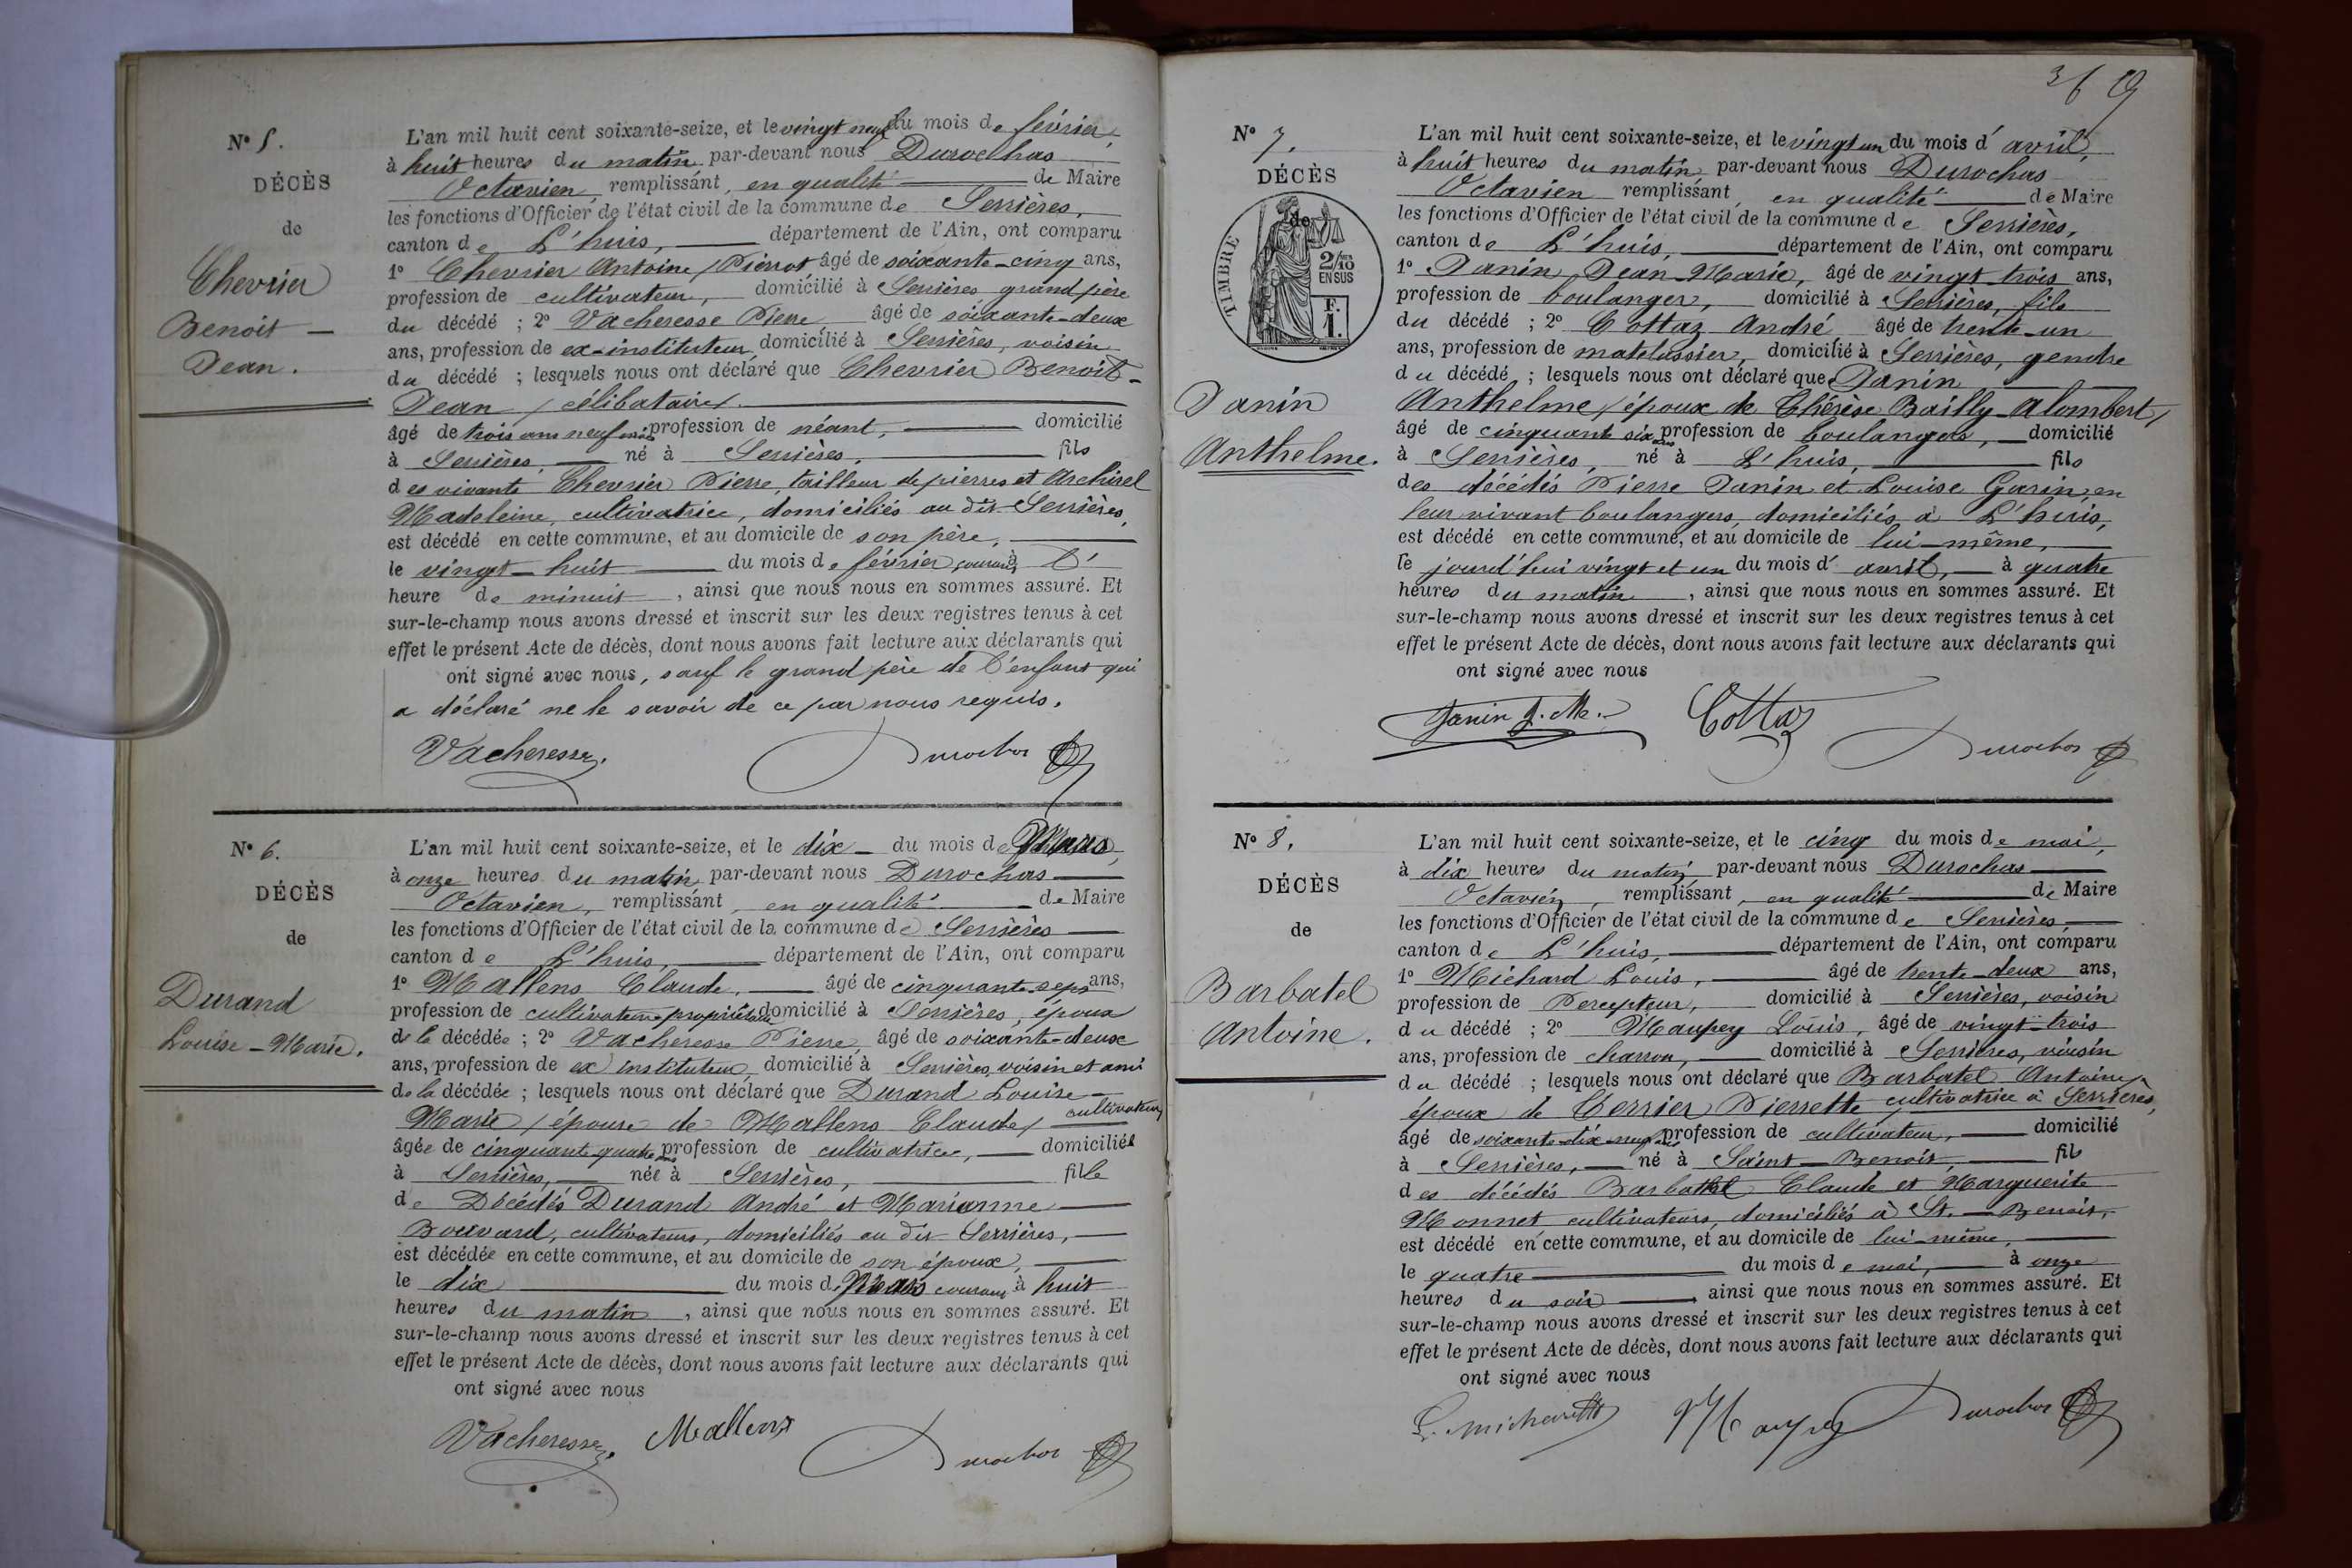 N° 5.
DÉCÈS
de
Chevrier
Benoit -
Jean.
L'an mil huit cent soixante-seize, et le vingt neuf du mois de février,
à huit heures du matin par-devant nous Durochas
Octavien, remplissant, en qualité de Maire
les fonctions d'Officier de l'état civil de la commune de Serrières,
canton de L'huis, département de l'Ain, ont comparu
1° Chevrier Antoine / Pierrot âgé de soixante-cinq ans,
profession de cultivateur, domicilié à Serrières grand père
du décédé ; 2° Vacheresse Pierre âgé de soixante-deux
ans, profession de ex-instituteur, domicilié à Serrières, voisin
du décédé ; lesquels nous ont déclaré que Chevrier Benoit-
Jean / célibataire /
âgé de trois ans neuf mois profession de néant, domicilié
à Serrières, né à Serrières, fils
des vivants Chevrier Pierre, tailleur de pierres et Archirel
Madeleine, cultivatrice, domiciliés au dit Serrières,
est décédé en cette commune, et au domicile de son père,
le vingt-huit du mois de février courant, à l'
heure de minuit, ainsi que nous nous en sommes assuré. Et
sur-le-champ nous avons dressé et inscrit sur les deux registres tenus à cet
effet le présent Acte de décès, dont nous avons fait lecture aux déclarants qui
ont signé avec nous, sauf le grand père de l'enfant qui
a déclaré ne le savoir de ce par nous requis.
Vacheresse. Durochas
N° 6.
DÉCÈS
de
Durand
Louise-Marie.
L'an mil huit cent soixante-seize, et le dix du mois de Mars,
à onze heures du matin par-devant nous Durochas
Octavien, remplissant, en qualité de Maire
les fonctions d'Officier de l'état civil de la commune de Serrières
canton de L'huis, département de l'Ain, ont comparu
1° Mallens Claude, âgé de cinquante-sept ans,
profession de cultivateur propriétaire domicilié à Serrières, époux
de la décédée ; 2° Vacheresse Pierre âgé de soixante-deux
ans, profession de ex instituteur, domicilié à Serrières, voisin et ami
de la décédée ; lesquels nous ont déclaré que Durand Louise-
Marie / épouse de Mallens Claude / cultivateur
âgée de cinquante quatre ans profession de cultivatrice, domiciliée
à Serrières, née à Serrières, fille
de Décédés Durand André et Marianne
Bouvard, cultivateurs, domiciliés au dit Serrières,
est décédée en cette commune, et au domicile de son époux,
le dix du mois de Mars courant à huit
heures du matin, ainsi que nous nous en sommes assuré. Et
sur-le-champ nous avons dressé et inscrit sur les deux registres tenus à cet
effet le présent Acte de décès, dont nous avons fait lecture aux déclarants qui
ont signé avec nous
Vacheresse. Mallens Durochas
N° 7.
DÉCÈS
de
TIMBRE
2/10
EN SUS
F.
1.
Janin
Anthelme.
L'an mil huit cent soixante-seize, et le vingt un du mois d'avril,
à huit heures du matin, par-devant nous Durochas
Octavien remplissant, en qualité de Maire
les fonctions d'Officier de l'état civil de la commune de Serrières,
canton de L'huis, département de l'Ain, ont comparu
1° Janin Jean-Marie, âgé de vingt-trois ans,
profession de boulanger, domicilié à Serrières, fils
du décédé ; 2° Cottaz André âgé de trente-un
ans, profession de matelassier, domicilié à Serrières, gendre
du décédé ; lesquels nous ont déclaré que Janin
Anthelme / époux de Thérèse Bailly-Alombert /
âgé de cinquante six ans profession de boulanger, domicilié
à Serrières, né à L'huis, fils
des décédés Pierre Janin et Louise Garin, en
leur vivant boulangers, domiciliés à L'huis,
est décédé en cette commune, et au domicile de lui-même,
le jourd'hui vingt et un du mois d'avril, à quatre
heures du matin, ainsi que nous nous en sommes assuré. Et
sur-le-champ nous avons dressé et inscrit sur les deux registres tenus à cet
effet le présent Acte de décès, dont nous avons fait lecture aux déclarants qui
ont signé avec nous
Janin J. M. Cottaz Durochas
N° 8.
DÉCÈS
de
Barbatel
Antoine.
L'an mil huit cent soixante-seize, et le cinq du mois de mai,
à dix heures du matin, par-devant nous Durochas
Octavien, remplissant, en qualité de Maire
les fonctions d'Officier de l'état civil de la commune de Serrières,
canton de L'huis, département de l'Ain, ont comparu
1° Michard Louis, âgé de trente-deux ans,
profession de Percepteur, domicilié à Serrières, voisin
du décédé ; 2° Maupey Louis, âgé de vingt-trois
ans, profession de charron, domicilié à Serrières, voisin
du décédé ; lesquels nous ont déclaré que Barbatel Antoine,
époux de Terrier Pierrette cultivatrice à Serrières,
âgé de soixante-dix-neuf ans profession de cultivateur, domicilié
à Serrières, né à Saint-Benoit, fils
des décédés Barbatel Claude et Marguerite
Monnet cultivateurs, domiciliés à St.-Benoit,
est décédé en cette commune, et au domicile de lui-même,
le quatre du mois de mai, à onze
heures du soir, ainsi que nous nous en sommes assuré. Et
sur-le-champ nous avons dressé et inscrit sur les deux registres tenus à cet
effet le présent Acte de décès, dont nous avons fait lecture aux déclarants qui
ont signé avec nous
L. Michard Maupey Durochas